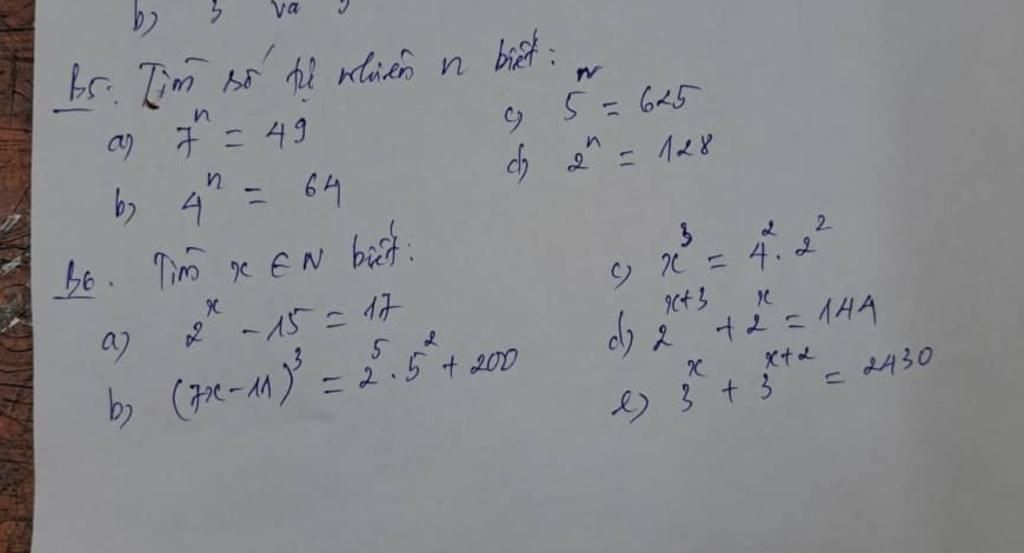 b) 3 và
B5: Tìm số tự nhiên n biết:
a) 7ⁿ = 49
b) 4ⁿ = 64
c) 5ⁿ = 625
d) 2ⁿ = 128
B6. Tìm x ∈ N biết:
a) 2ˣ - 15 = 17
b) (7x - 11)³ = 2⁵ . 5² + 200
c) x³ = 4² . 2²
d) 2ˣ⁺³ + 2ˣ = 144
e) 3ˣ + 3ˣ⁺² = 2430